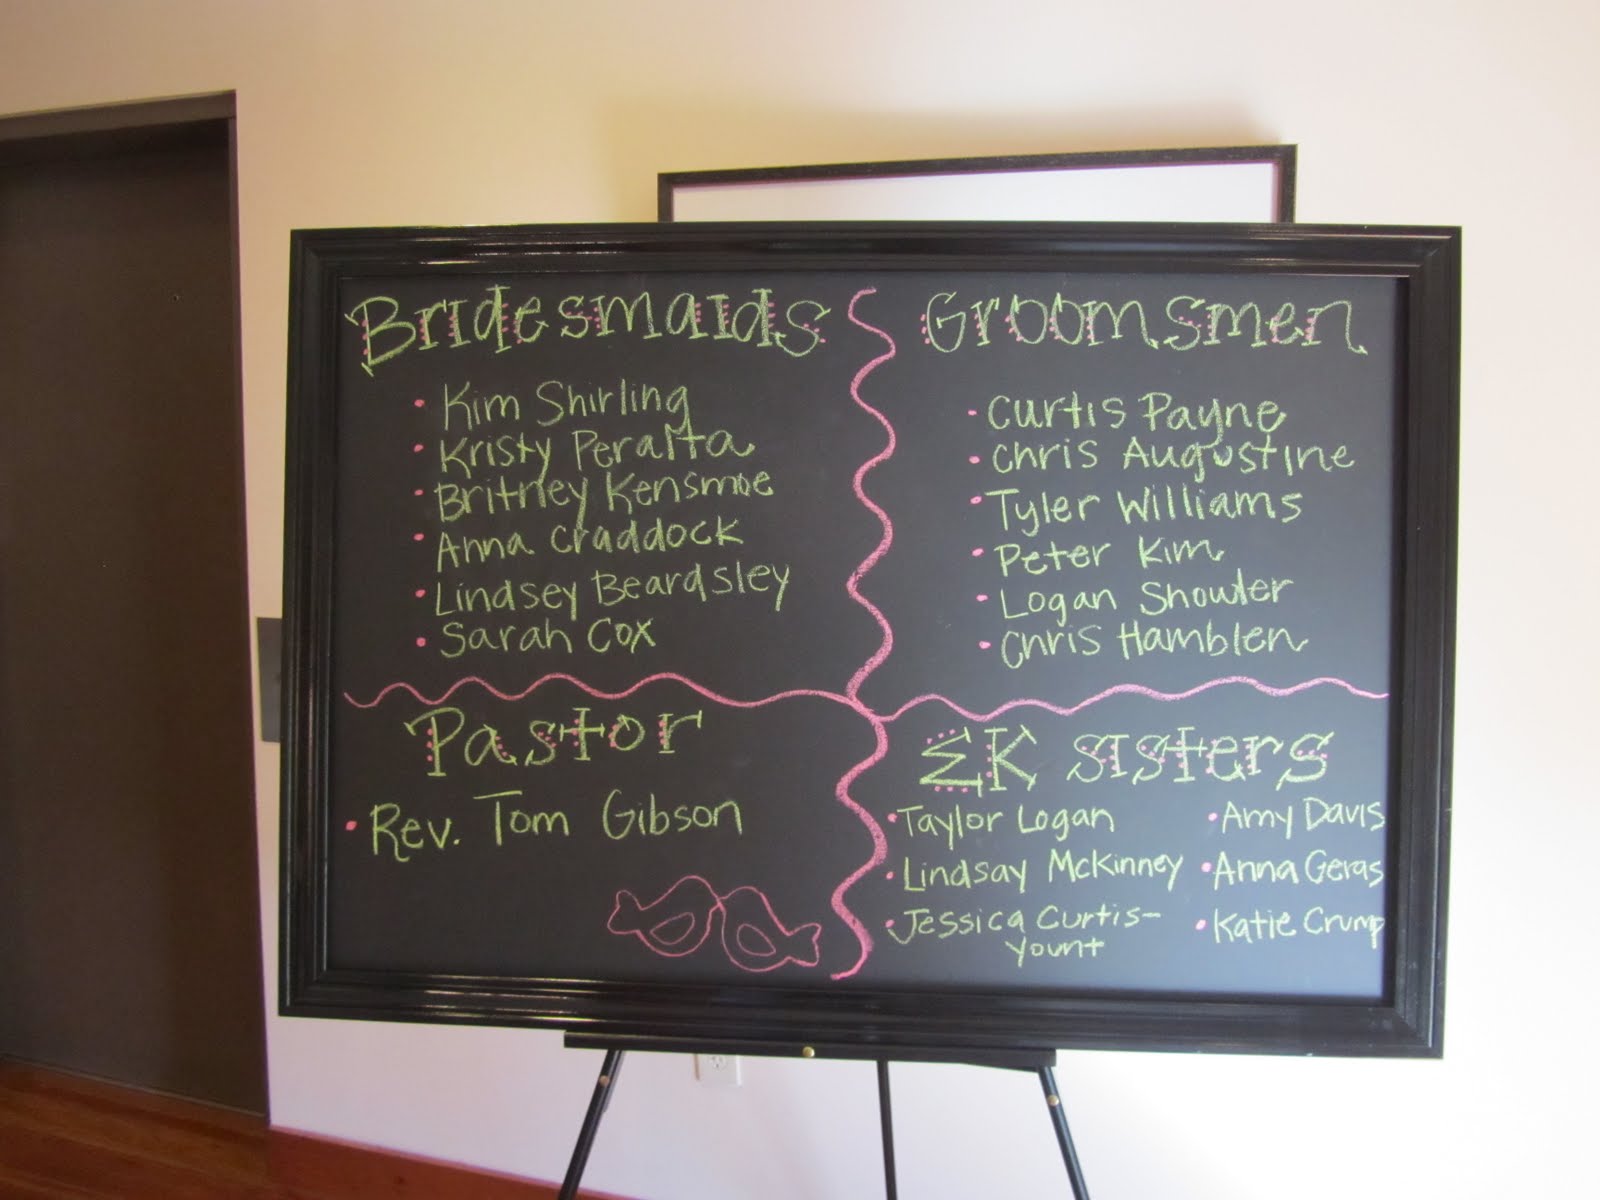 Bridesmaids
• Kim Shirling
• Kristy Peralta
• Britney Kensmoe
• Anna Craddock
• Lindsey Beardsley
• Sarah Cox
Groomsmen
• Curtis Payne
• Chris Augustine
• Tyler Williams
• Peter Kim
• Logan Showler
• Chris Hamblen
Pastor
• Rev. Tom Gibson
ΣK Sisters
• Taylor Logan
• Lindsay McKinney
• Jessica Curtis-
Yount
• Amy Davis
• Anna Geras
• Katie Crump